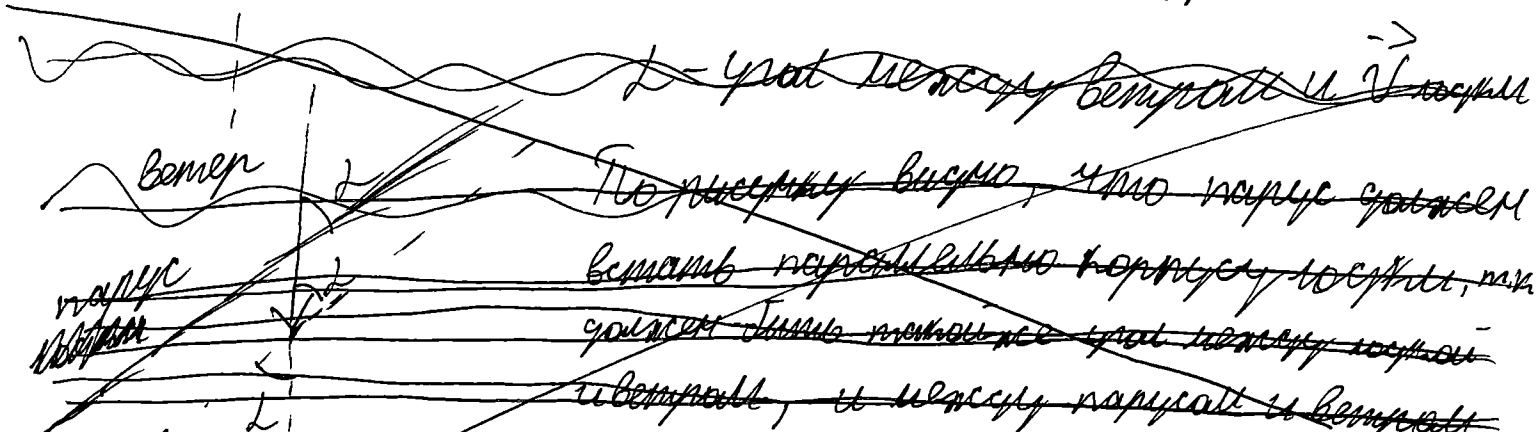 L - угол между ветром и V лодки
ветер L
По рисунку видно, что парус должен
встать параллельно корпусу лодки, т.к
парус L
должен быть такой же угол между лодкой
и ветром, и между парусом и ветром
L